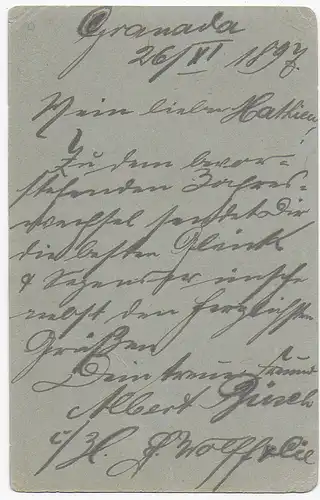 Granada
26/XI 1897.
Mein lieber Mathieu!
Zu dem bevor-
stehenden Jahres-
wechsel sendet Dir
die besten Glück
& Segenswünsche
nebst den herzlichsten
Grüßen
Dein treuer Freund
Albert
c/ H. Wolff